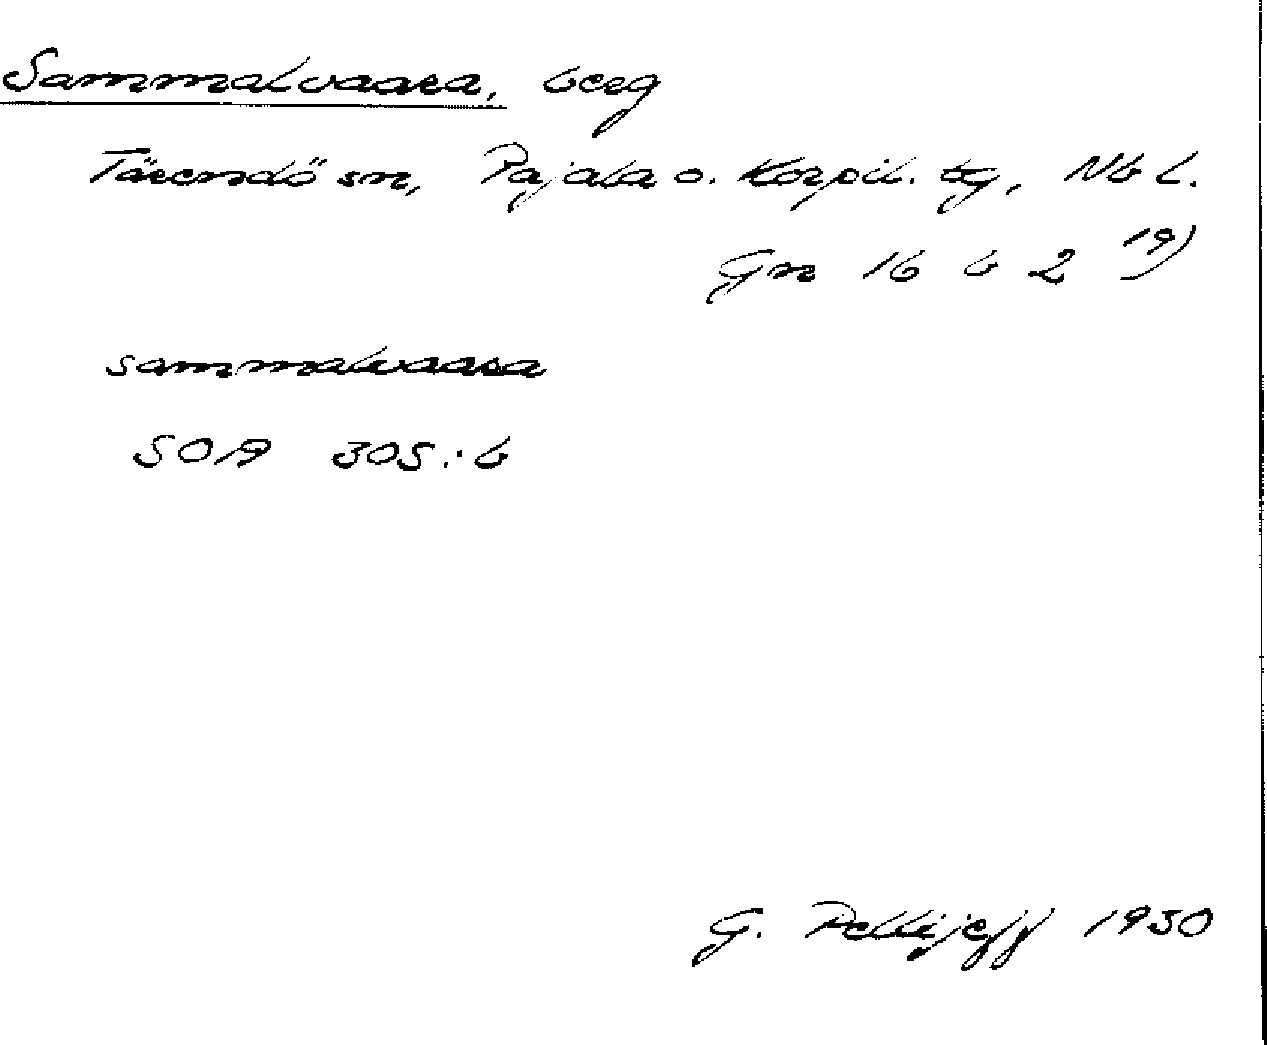 Sammalvaara, berg
Tärendö sn, Pajala o. Korpil. tg, Nb l.
Gn 16 b 2 19)
sammalvaara
SOA 305:6
G. Pellijeff 1950